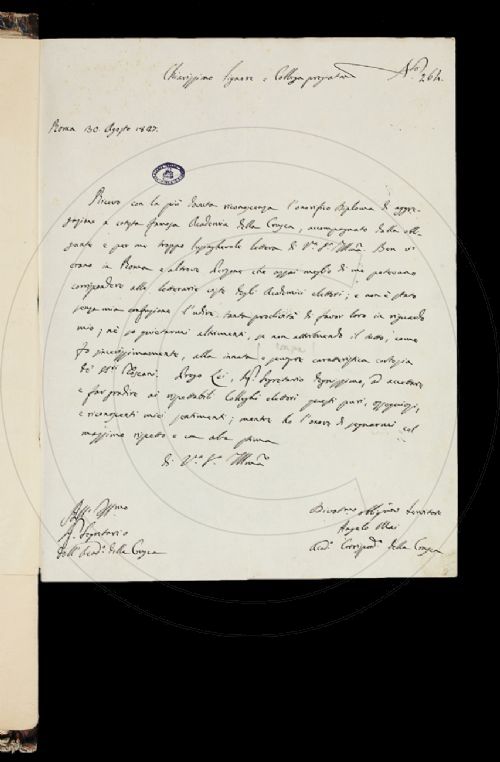 Chiarissimo Signore e Collega pregiatmo
No. 264.
Roma 30. Agosto 1827.
Ricevo con la più dovuta riconoscenza l'onorifico Diploma di aggre-
gazione a cotesta famosa Accademia della Crusca, accompagnato dalla ele-
gante e per me troppo lusinghevole lettera di Va. Sa. Illma. Ben vi
erano in Roma e altrove Persone che assai meglio di me potevano
corrispondere alle letterarie degli Accademici elettori; e non è stato
senza mia confusione l'udire tanta proclività di favor loro in riguardo
mio; nè so quietarmi altrimenti, se non attribuendo il tutto, come
fo sincerissimamente, alla innata e sempre caratteristica cortesia
de' Toscani. Prego Lei, Sig. Segretario degnissimo, ad accettare
e far gradire ai rispettabili Colleghi elettori questi puri, ossequiosi,
e riconoscenti miei sentimenti; mentre ho l'onore di segnarmi col
massimo rispetto e con alta stima
di Va. Sa. Illma
Sig. Segretario
dell' Accad. della Crusca
Devotmo. obbligmo Servitore
Angelo Mai
Accad. Corrispond. della Crusca